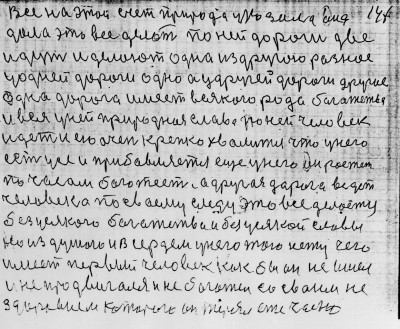 Все на этот счет природа
144
дала это все делать по ней дороги две
идут и делают одна из другого разное
у одней дороги одно а у другей дороги другое
Одна дорога имеет всякого рода богатство
и вся у ней природная слава по ней человек
идет и его очен крепко хвалит что у него
есть уже и прибавляется еще у него Он ростет
по часам богатеет. а другая дорога ведет
человека по своему следу это все делается
без усякого богатства и без усякой славы
Но из думого и в сердем у него того нету чего
имеет первый человек как бы он не имел
и не продвигался и не богател со своим не
здоровием которого он терял